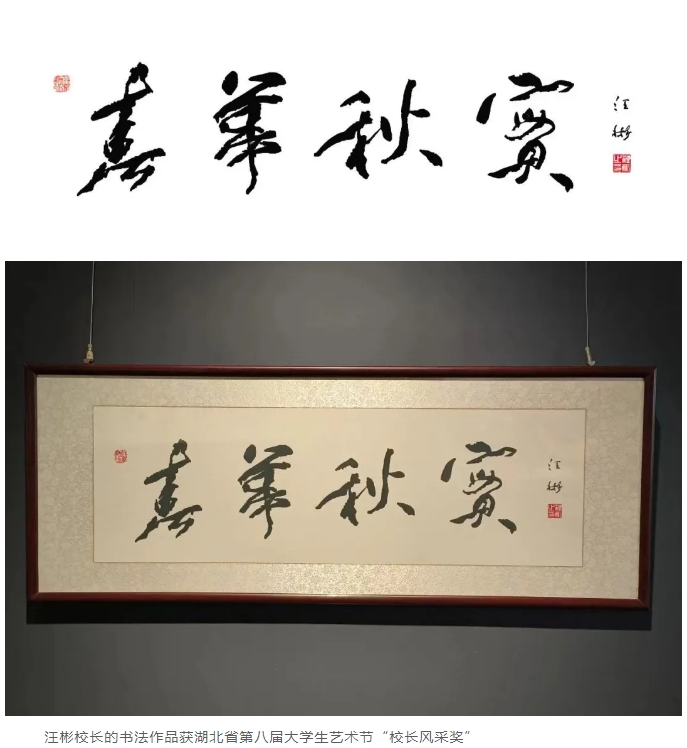 春華秋實
汪彬
春華秋實
汪彬
汪彬校长的书法作品获湖北省第八届大学生艺术节“校长风采奖”